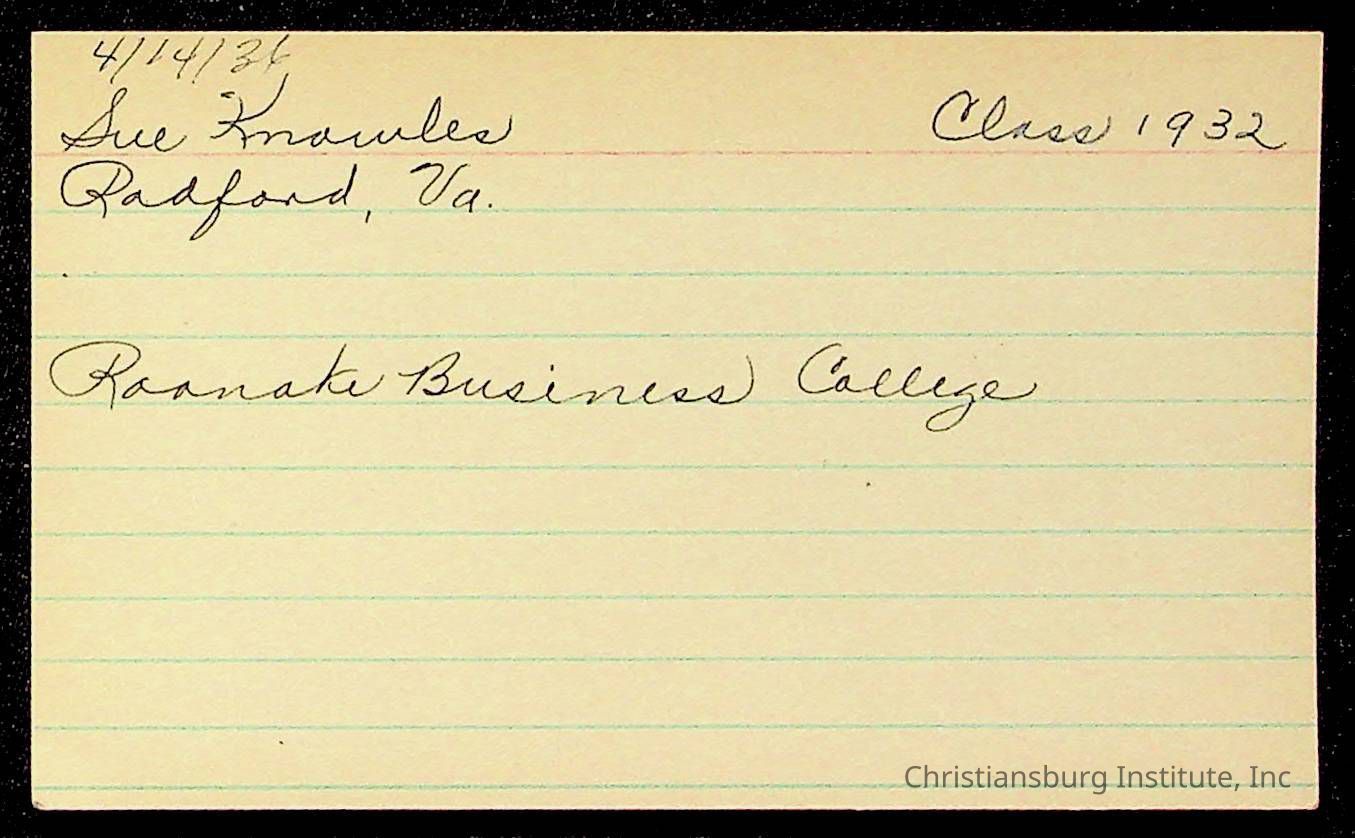 4/14/36
Sue Knowles Class 1932
Radford, Va.
Roanoke Business College
Christiansburg Institute, Inc